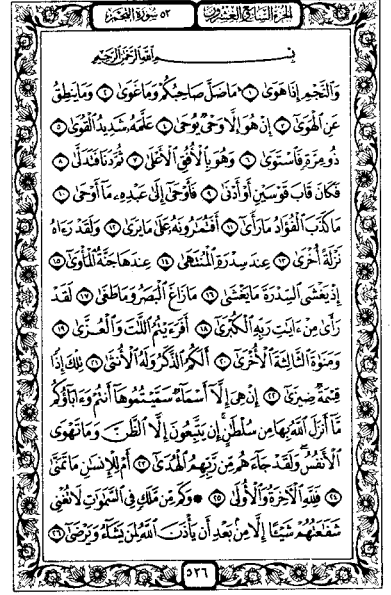 الجزء السابع والعشرون ٥٣ سورة النجم
بِسْمِ اللَّهِ الرَّحْمَٰنِ الرَّحِيمِ
وَالنَّجْمِ إِذَا هَوَىٰ ١ مَا ضَلَّ صَاحِبُكُمْ وَمَا غَوَىٰ ٢ وَمَا يَنطِقُ
عَنِ الْهَوَىٰ ٣ إِنْ هُوَ إِلَّا وَحْيٌ يُوحَىٰ ٤ عَلَّمَهُ شَدِيدُ الْقُوَىٰ ٥
ذُو مِرَّةٍ فَاسْتَوَىٰ ٦ وَهُوَ بِالْأُفُقِ الْأَعْلَىٰ ٧ ثُمَّ دَنَا فَتَدَلَّىٰ ٨
فَكَانَ قَابَ قَوْسَيْنِ أَوْ أَدْنَىٰ ٩ فَأَوْحَىٰ إِلَىٰ عَبْدِهِ مَا أَوْحَىٰ ١٠
مَا كَذَبَ الْفُؤَادُ مَا رَأَىٰ ١١ أَفَتُمَارُونَهُ عَلَىٰ مَا يَرَىٰ ١٢ وَلَقَدْ رَءَاهُ
نَزْلَةً أُخْرَىٰ ١٣ عِندَ سِدْرَةِ الْمُنتَهَىٰ ١٤ عِندَهَا جَنَّةُ الْمَأْوَىٰ ١٥
إِذْ يَغْشَى السِّدْرَةَ مَا يَغْشَىٰ ١٦ مَا زَاغَ الْبَصَرُ وَمَا طَغَىٰ ١٧ لَقَدْ
رَأَىٰ مِنْ ءَايَٰتِ رَبِّهِ الْكُبْرَىٰ ١٨ أَفَرَءَيْتُمُ اللَّٰتَ وَالْعُزَّىٰ ١٩
وَمَنَوٰةَ الثَّالِثَةَ الْأُخْرَىٰ ٢٠ أَلَكُمُ الذَّكَرُ وَلَهُ الْأُنثَىٰ ٢١ تِلْكَ إِذًا
قِسْمَةٌ ضِيزَىٰ ٢٢ إِنْ هِيَ إِلَّا أَسْمَاءٌ سَمَّيْتُمُوهَا أَنتُمْ وَءَابَاؤُكُم
مَّا أَنزَلَ اللَّهُ بِهَا مِن سُلْطَٰنٍ إِن يَتَّبِعُونَ إِلَّا الظَّنَّ وَمَا تَهْوَى
الْأَنفُسُ وَلَقَدْ جَاءَهُم مِّن رَّبِّهِمُ الْهُدَىٰ ٢٣ أَمْ لِلْإِنسَٰنِ مَا تَمَنَّىٰ
٢٤ فَلِلَّهِ الْآخِرَةُ وَالْأُولَىٰ ٢٥ وَكَم مِّن مَّلَكٍ فِي السَّمَٰوَٰتِ لَا تُغْنِي
شَفَٰعَتُهُمْ شَيْـًٔا إِلَّا مِن بَعْدِ أَن يَأْذَنَ اللَّهُ لِمَن يَشَاءُ وَيَرْضَىٰ ٢٦
٥٢٦